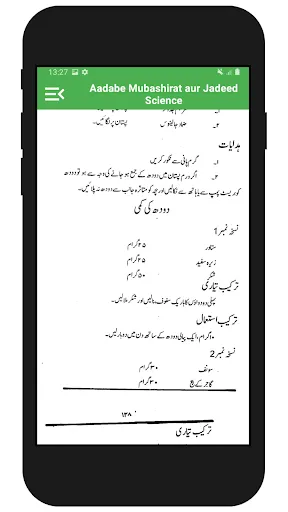 13:27
Aadabe Mubashirat aur Jadeed Science
۲۔ ضماد جالینوس پستان پر لگائیں۔
ہدایات
۱۔ گرم پانی سے ٹکور کریں
۲۔ اگر ورم پستان میں دودھ کے جمع ہو جانے کی وجہ سے ہو تو دودھ
کو بریسٹ پمپ سے یا ہاتھ سے نکالیں اور بچہ کو متاثرہ جانب سے دودھ نہ پلائیں۔
دودھ کی کمی
نسخہ نمبر 1
ستاور ۲۵ گرام
زیرہ سفید ۲۵ گرام
شکر ۵۰ گرام
ترکیب تیاری
پہلی دو دواؤں کا باریک سفوف بنالیں اور شکر ملالیں۔
ترکیب استعمال
۱۰ گرام، ایک پیالی دودھ کے ساتھ دن میں دو بار لیں۔
نسخہ نمبر 2
سونف ۳۰ گرام
گاجر کے بیج ۳۰ گرام
۱۳۸
ترکیب تیاری